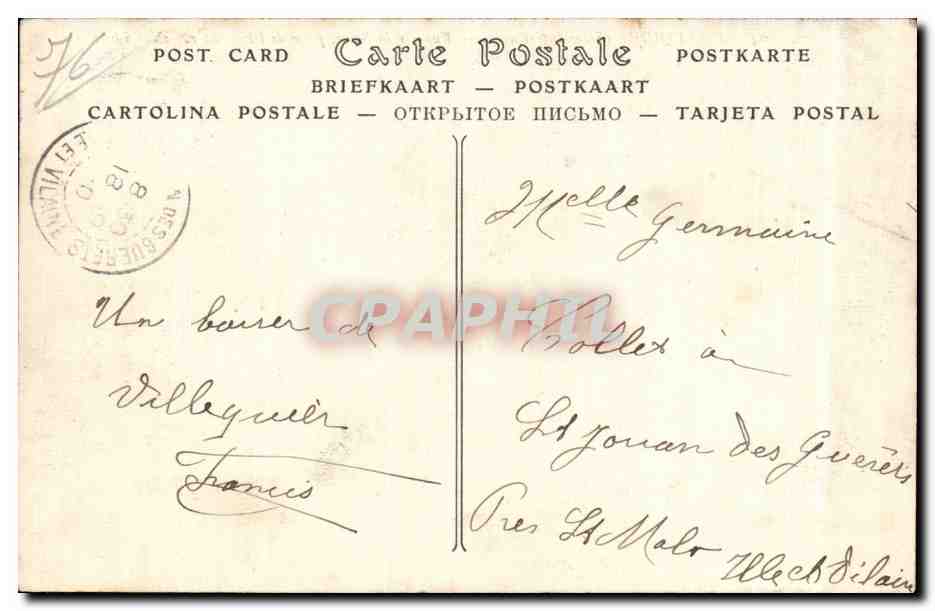 76
POST. CARD Carte Postale POSTKARTE
BRIEFKAART — POSTKAART
CARTOLINA POSTALE — ОТКРЫТОЕ ПИСЬМО — TARJETA POSTAL
DES GUERETS
ET VILAINE
18
8 30
Melle Germaine
Un baiser de
CPAPHIL
à
Villequier
St Jouan des Guérêts
Francis
Près St Malo
Ille et Vilaine